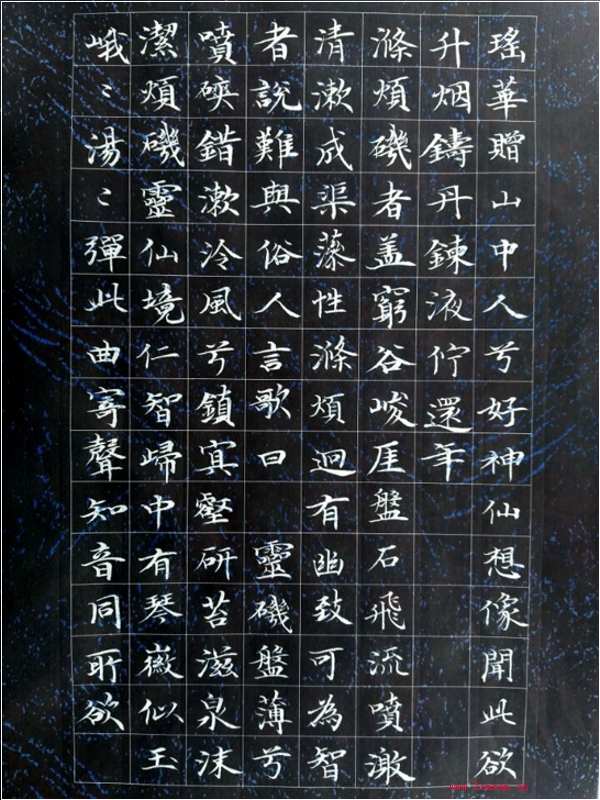 瑤華贈山中人兮好神仙想像聞此欲
升烟鑄丹鍊液佇還年
滌煩磯者盖窮谷峻厓盤石飛流噴激
清漱成渠藻性滌煩迥有幽致可為智
者說難與俗人言歌曰 靈磯盤薄兮
噴錯漱泠風兮鎮冥壑研苔滋泉沫
潔煩磯靈仙境仁智歸中有琴徽似玉
峨〻湯〻彈此曲寄聲知音同所欲